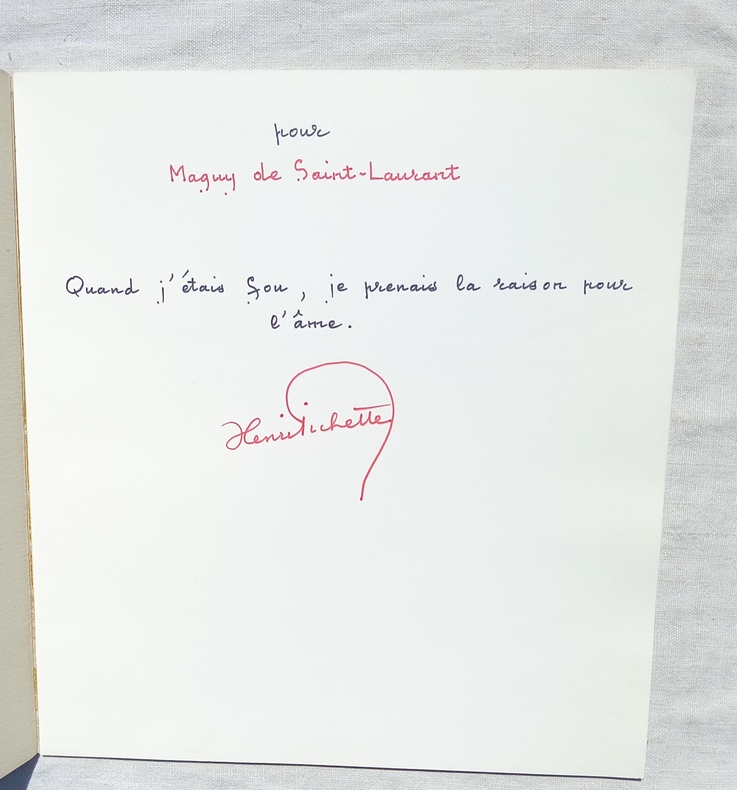 pour
Maguy de Saint-Laurant
Quand j'étais fou, je prenais la raison pour
l'âme.
Henri Pichette